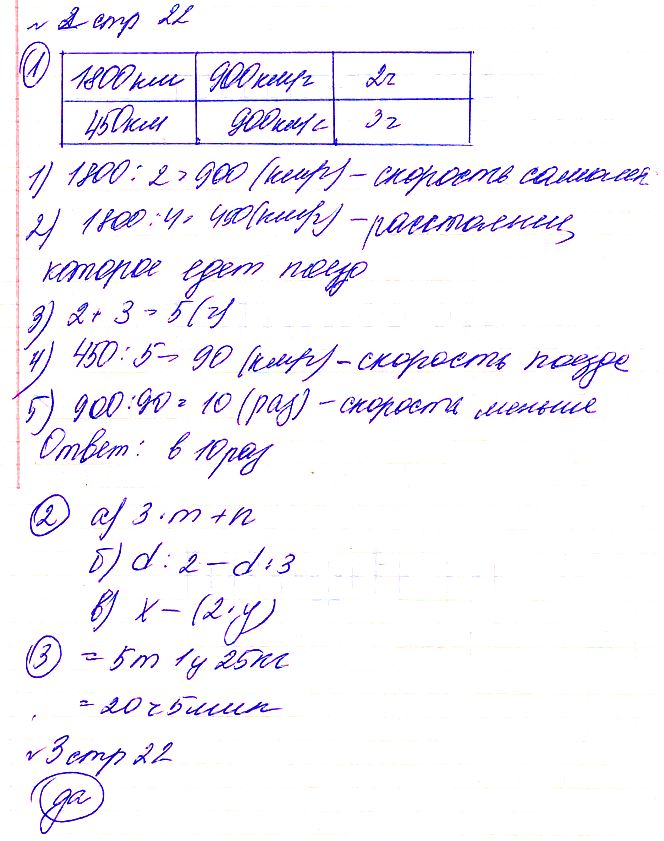 № 2 стр 22
1
1800км 900км/г 2г
450км 900км/г 3г
1) 1800 : 2 = 900 (км/г) – скорость самолет
2) 1800 : 4 = 450 (км/г) – расстояние,
которое едет поезд
3) 2 + 3 = 5 (г)
4) 450 : 5 = 90 (км/г) – скорость поезда
5) 900 : 90 = 10 (раз) – скорость меньше
Ответ: в 10 раз
2 а) 3 · m + n
б) d : 2 – d : 3
в) x – (2 · y)
3 = 5т 1ц 25кг
= 20ч 5мин
№ 3 стр 22
да